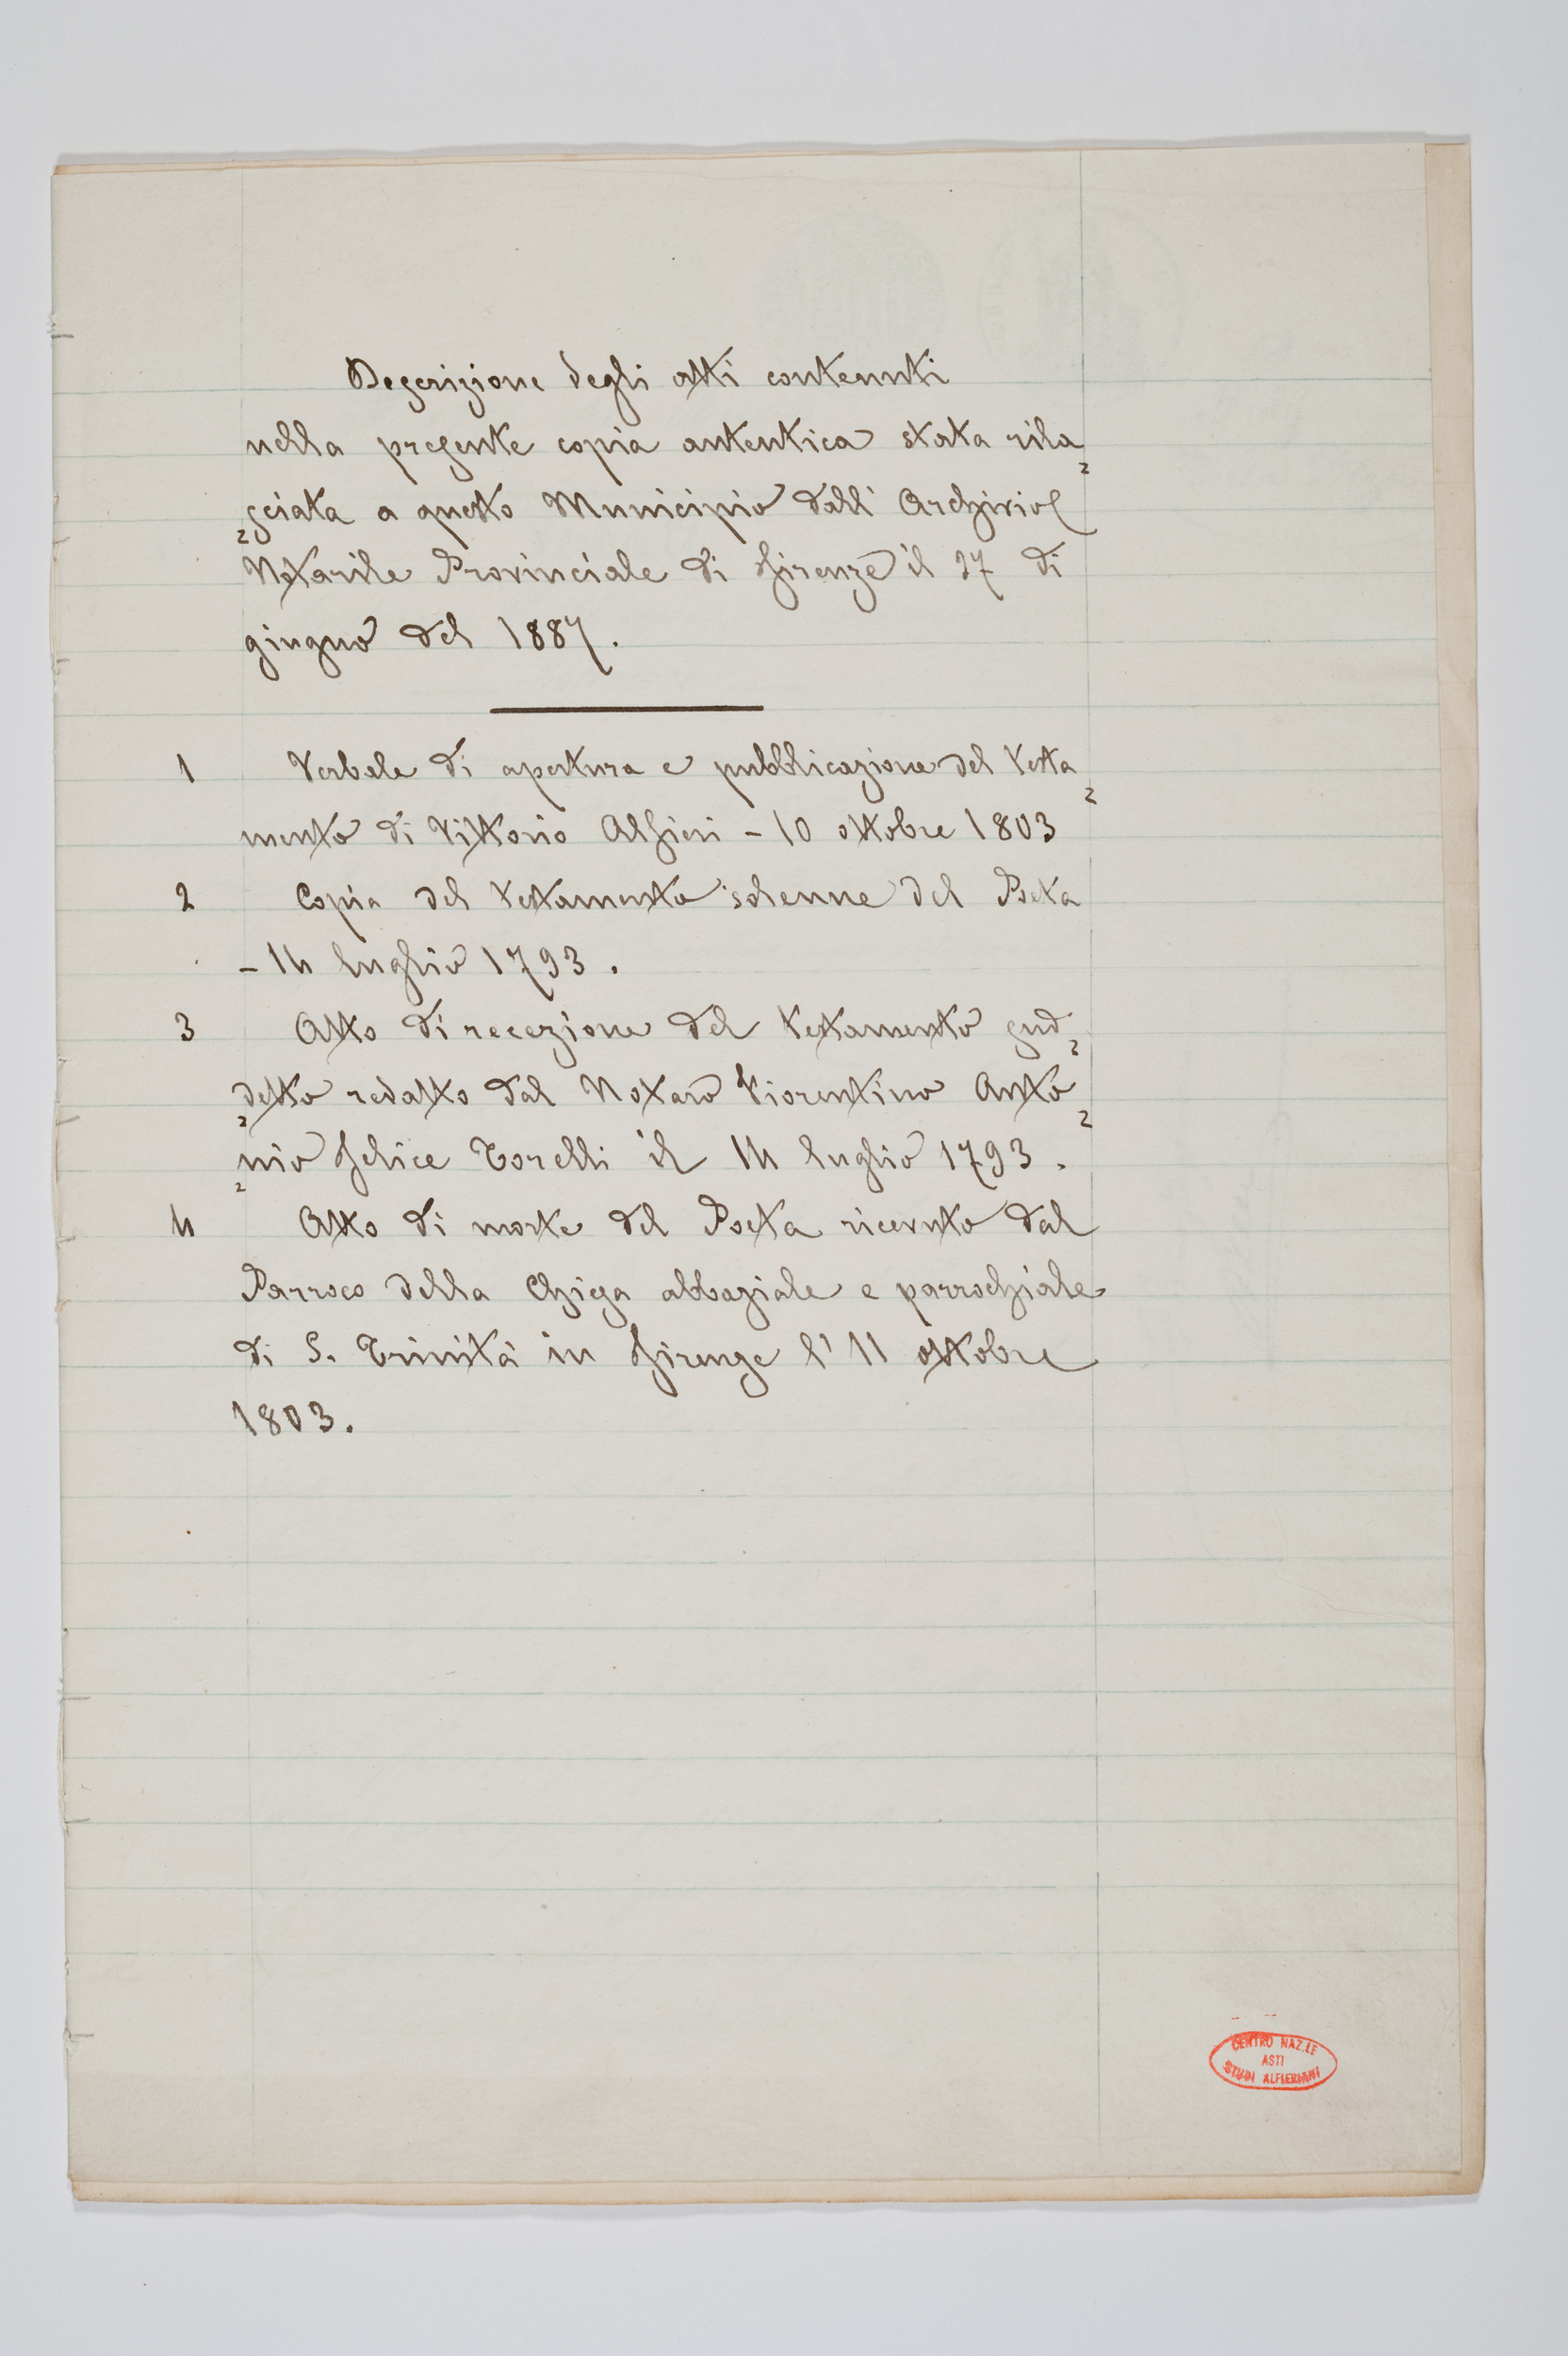 Descrizione degli atti contenuti
nella presente copia autentica stata rila=
=sciata a questo Municipio dall'Archivio
Notarile Provinciale di Firenze il 27 di
giugno del 1887.
1 Verbale di apertura e pubblicazione del testa=
mento di Vittorio Alfieri - 10 ottobre 1803
2 Copia del testamento solenne del Poeta
- 14 luglio 1793.
3 Atto di recezione del testamento sud=
=detto redatto dal Notaro Fiorentino Anto=
=nio Felice Torelli il 14 luglio 1793.
4 Atto di morte del Poeta ricevuto dal
Parroco della Chiesa abbaziale e parrochiale
di S. Trinità in Firenze l'11 ottobre
1803.
CENTRO NAZ.LE
ASTI
STUDI ALFIERIANI